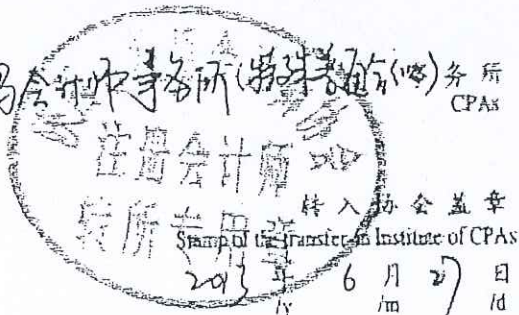 会计师事务所(特殊普通合伙)务所
CPAs
注册会计师
转所专用章
转入协会盖章
Stamp of the transfer-in Institute of CPAs
2013年 6月27日
/y /m /d